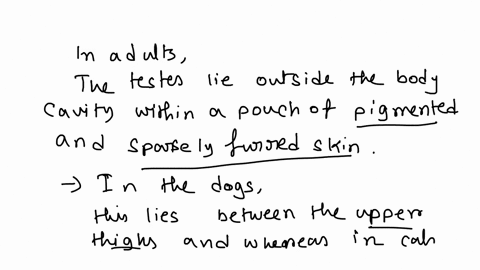 In adults,
The testes lie outside the body
cavity within a pouch of pigmented
and sparsely furred skin.
→ In the dogs,
this lies between the upper
thighs and whereas in cats